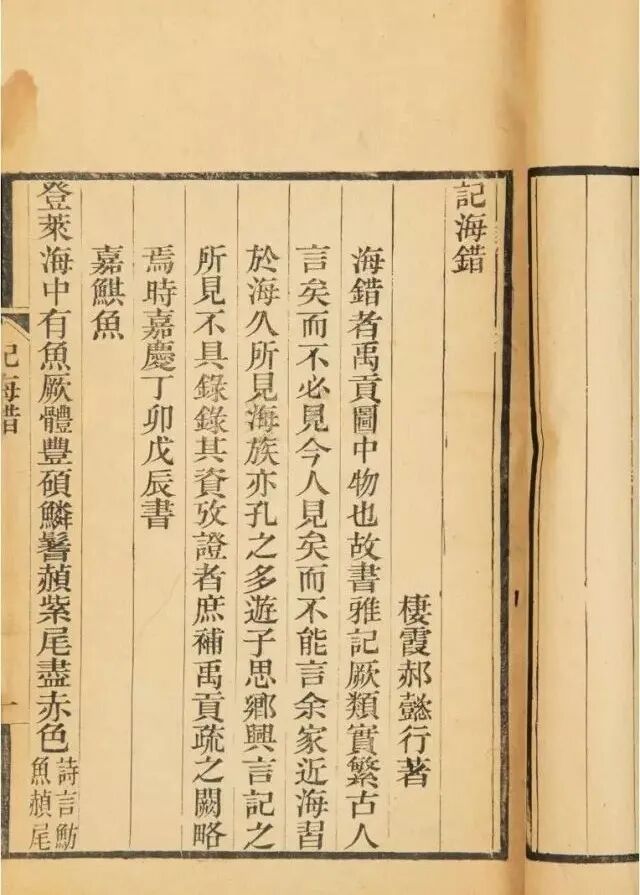 記海錯
棲霞郝懿行著
海錯者禹貢圖中物也故書雅記厥類實繁古人
言矣而不必見今人見矣而不能言余家近海習
於海久所見海族亦孔之多遊子思鄉興言記之
所見不具錄錄其資攷證者庶補禹貢疏之闕略
焉時嘉慶丁卯戊辰書
嘉鯕魚
登萊海中有魚厥體豐碩鱗鬐赬紫尾盡赤色
詩言魴
魚赬尾
記海錯
一